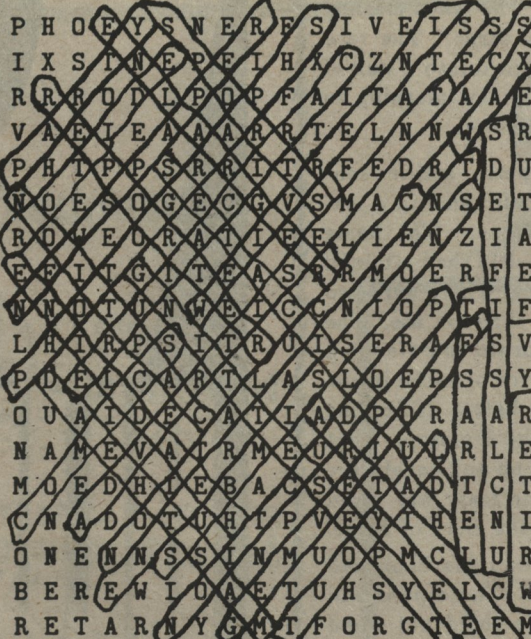 P H O E Y S N E R E S I V E I S S S
I X S I N E P E I H X C Z N T E C X
R R R O D L P O P F A I T A T A A E
V A E I E A A A R R T E L N N W S R
P H T P P S R R I T R F E D R T D U
N O E S O G E C G V S M A C N S E T
R O W E O R A T I E E L I E N Z I A
E E I T G I T E A S R R M O E R F E
N N O T U N W E I C C N I O P T I F
L H I R P S I T R U I S E R A E S V
P D E L C A R T L A S L O E P S S Y
O U A I D E C A T I A D P O R A A R
N A M E V A T R M E U R I U L R L E
M O E D H I E B A C S E T A D T C T
C N A D O T U H I P V E Y I H E N I
O N E N N S S I N M U O P M C L U R
B E R E W I O A E T U H S Y E L C W
R E T A R N Y G M T F O R G T E E N